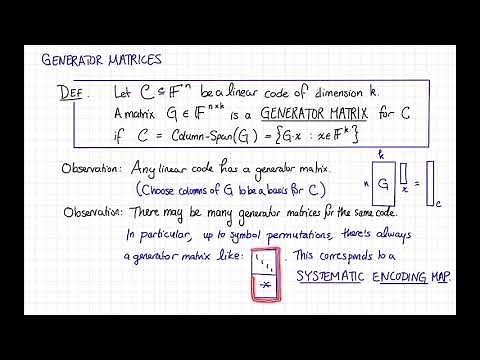 GENERATOR MATRICES
DEF. Let C ⊆ 𝔽ⁿ be a linear code of dimension k.
A matrix G ∈ 𝔽ⁿˣᵏ is a GENERATOR MATRIX for C
if C = Column-Span(G) = {G·x : x∈𝔽ᵏ}
Observation: Any linear code has a generator matrix.
(Choose columns of G to be a basis for C)
k
n G x = c
Observation: There may be many generator matrices for the same code.
In particular, up to symbol permutations, there's always
a generator matrix like: 1 1 1 1 * . This corresponds to a
SYSTEMATIC ENCODING MAP.